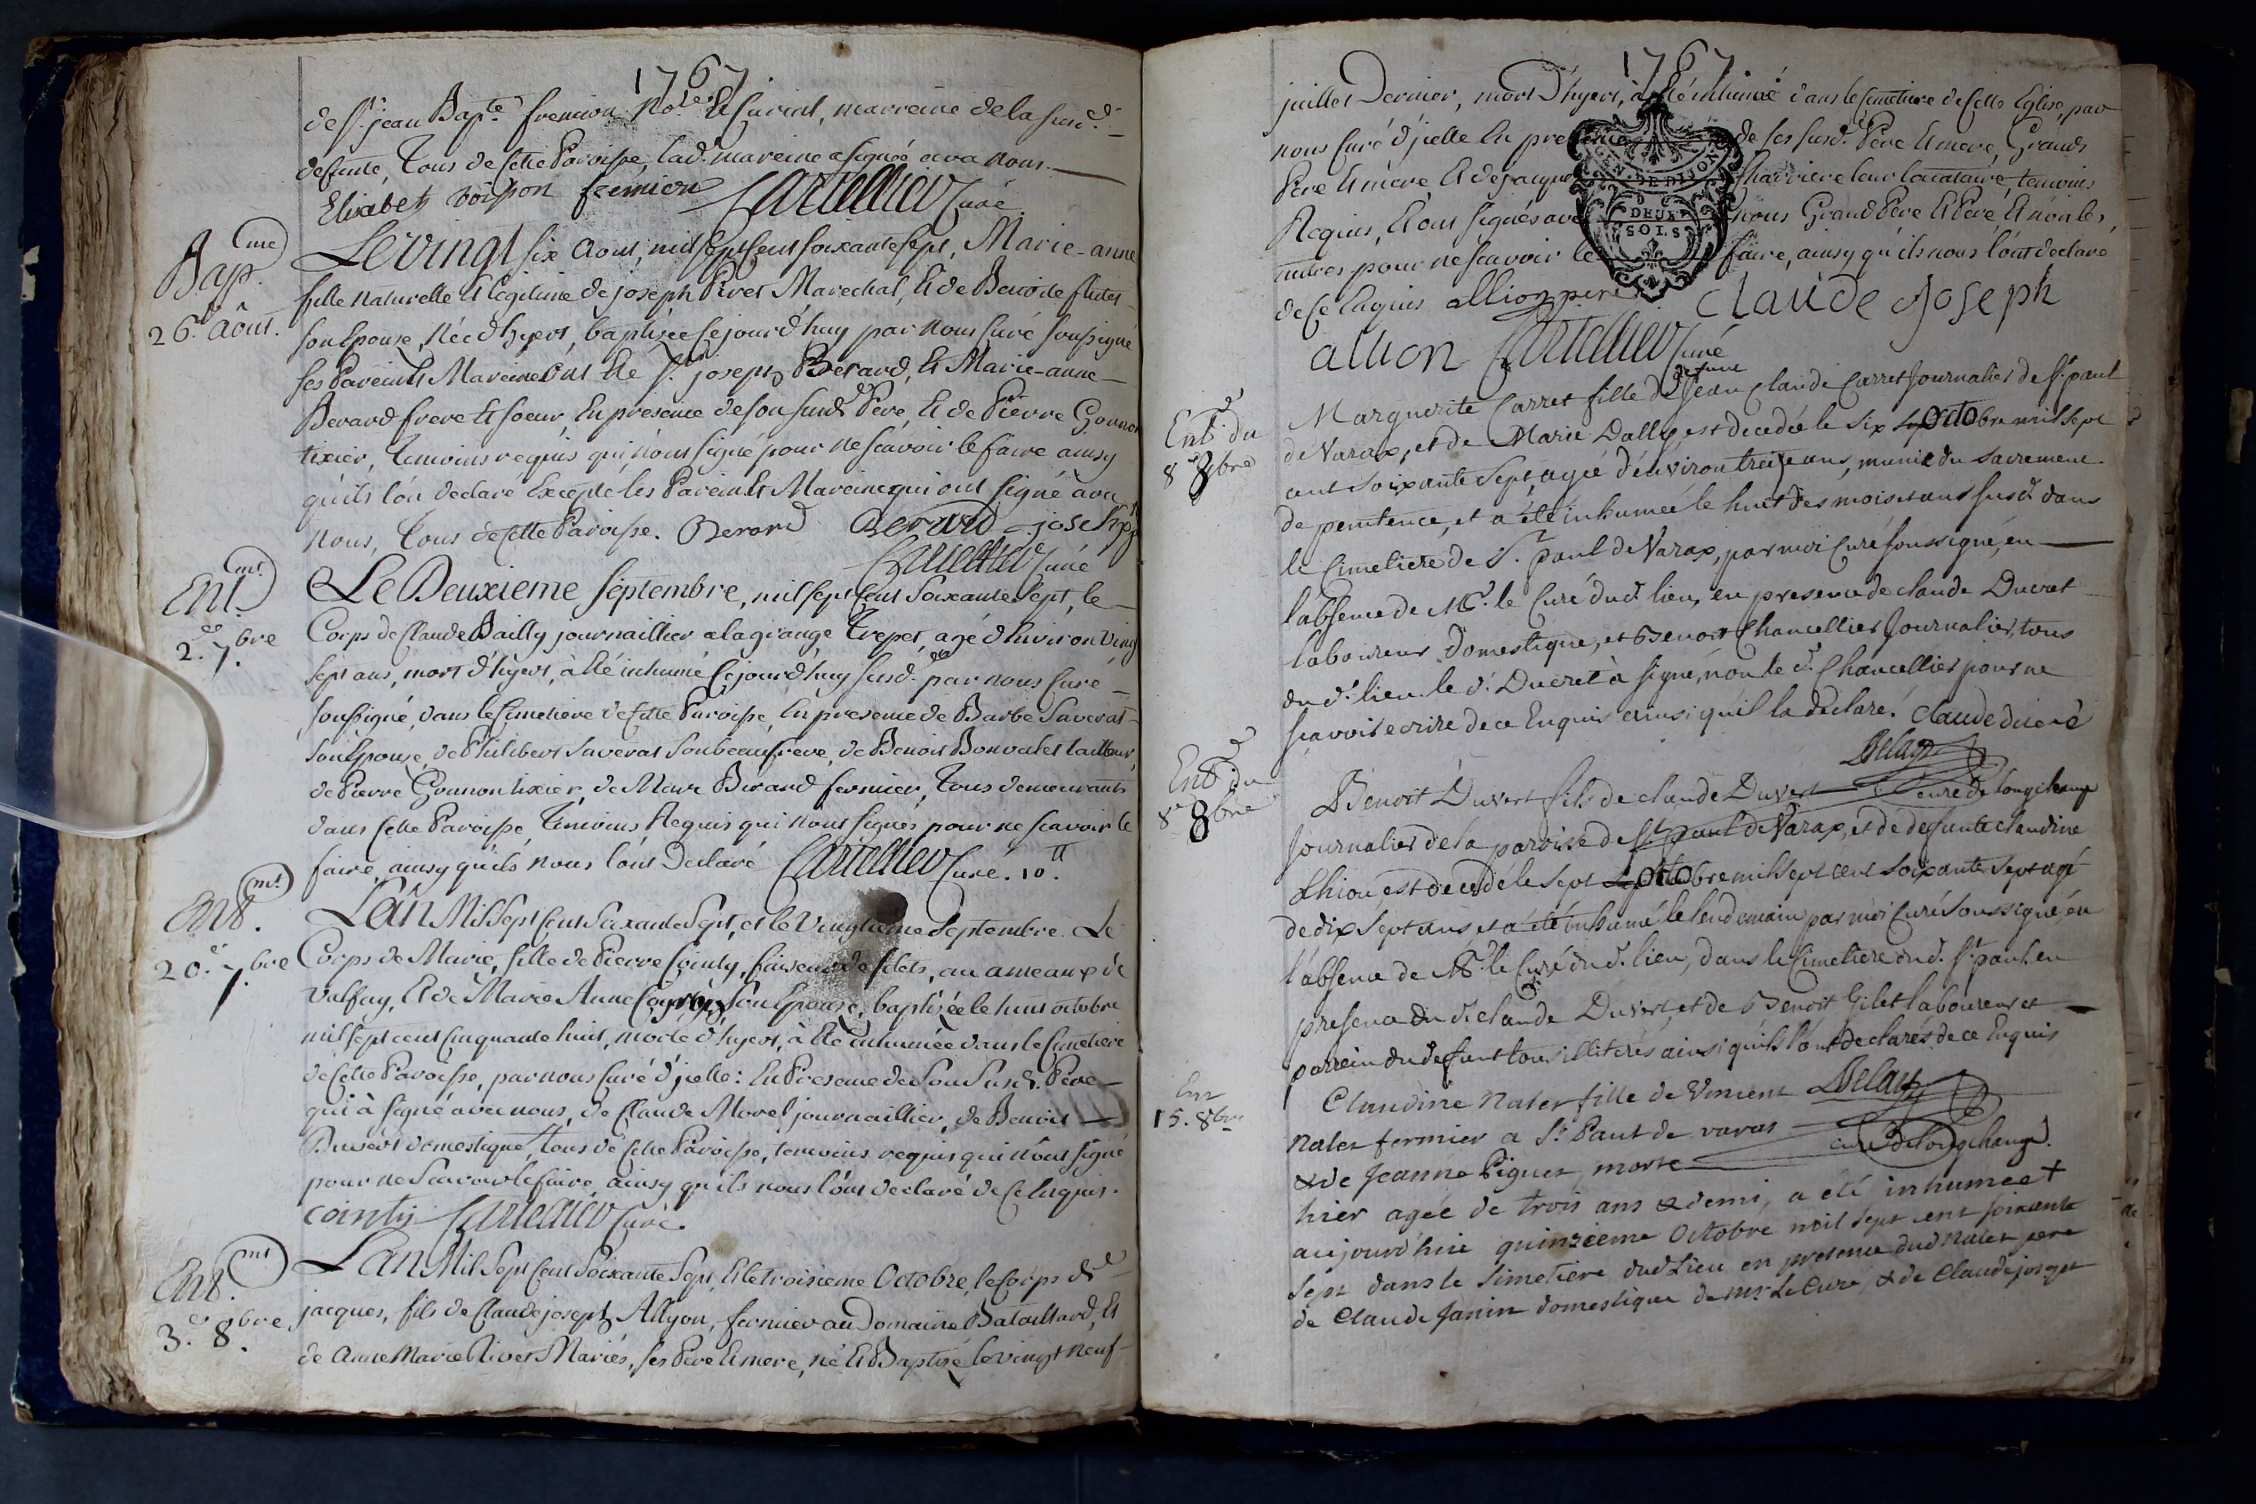 1767
de Sr. jean Bapte. fremion No.re Et Curial, marreine de la susd.e
defunte, Tous de Cette Paroisse, lad. mareine a signée avec nous.
Elisabet voisson fremion Cartellier Curé
Bap.me
26.e Août.
Le vingt six Aout, mil sept Cent soixante sept, Marie-anne
fille naturelle Et Legitime de joseph Pivet Marechal, Et de Benoite
son Epouse, Née d'hyert, baptisée Cejourd'huy par nous Curé soussigné
ses Parein Et Mareine ont Eté Sr. joseph Berard, Et Marie-anne
Berard frere Et soeur, En presence de son susd. Pere, Et de Pierre Gonnon
tixier, Temoins requis qui n'ont signé pour ne scavoir le faire ainsy
qu'ils l'on declaré Excepté les Parein Et Mareine qui ont signé avec
nous, Tous de Cette Paroisse. Berard Berard joseph
Cartellier Curé
Ent.mt
2.e 7.bre
Le Deuxieme Septembre, mil sept Cent Soixante Sept, le
Corps de Claude Bailly journaillier a la grange Trepet, agé d'Environ Vingt
sept ans, mort d'hyert, à Eté inhumé Cejourd'huy susd. par nous Curé
soussigné, dans le Cimetiere de Cette Paroisse, En presence de Barbe Saverat
son Epouse, de Philibert Saverat son beaufrere, de Benoit Bonvalet tailleur,
de Pierre Gonnon tixier, de Marc Berard fermier, Tous demeurants
dans Cette Paroisse, Temoins Requis qui n'ont signés pour ne scavoir le
faire, ainsy qu'ils nous l'ont Declaré Cartellier Curé. 10.tt
Ent.mt
20.e 7.bre
L'an Mil Sept Cent Soixante Sept, et le Vingtieme Septembre. Le
Corps de Marie, fille de Pierre Cointy, faiseur de filets, au ameaux de
Valfay, Et de Marie Anne son Epouse, baptisée le huit octobre
mil sept cent Cinquante huit, morte d'hyert, à Eté inhumée dans le Cimetiere
de Cette Paroisse, par nous Curé d'jcelle: En Presence de Son Susd. Pere
qui à signé avec nous, de Claude Morel journaillier, de Benoit
Buisert domestique, Tous de Cette Paroisse, temoins requis qui n'ont signé
pour ne Scavoir le faire, ainsy qu'ils nous l'ont declaré de Ce Enquis.
Cointy Cartellier Curé.
Ent.mt
3.e 8.bre
L'an Mil Sept Cent Soixante Sept, Et le troisieme Octobre, le Corps de
jacques, fils de Claude joseph Allyon, fermier au Domaine Bataillard, Et
de Anne Marie Rivet Mariés, ses Pere Et mere, né Et Baptisé le vingt neuf
1767
juillet Dernier, mort D'hyert, à Eté inhumé dans le Cimetiere de Cette Eglise, par
nous Curé d'jcelle En presence de ses susd. Pere Et mere, Grands
Pere Et mere, Et de jacques Charriere leur locataire, temoins
Requis, Et ont signés avec nous Grand Pere Et Pere, Et non les
autres pour ne scavoir le faire, ainsy qu'ils nous l'ont declaré
de Ce Enquis allion pere Claude Joseph
allion Cartellier Curé
GEN. DE DIJON
DEUX
SOLS
Ent.e du
8e 8bre
Marguerite Carret fille de defunt Jean Claude Carret Journalier de St. paul
de Varax, et de Marie Dally, est decedée le six octobre mil sept
cent Soixante Sept, agée d'environ treize ans, munie du Sacrement
de penitence, et a été inhumée le huit des mois et ans susd. dans
le Cimetiere de St. paul de Varax, par moi Curé soussigné, en
l'absence de Mr. le Curé dud. lieu, en presence de claude Ducret
laboureur Domestique, et Benoit Chancellier Journalier, tous
du d. lieu. le d. Ducret à signé, non le d. Chancellier pour ne
scavoir ecrire de ce Enquis ainsi qu'il la declaré. Claude ducré
Delay
curé de Longchamp
Ent.e du
8e 8bre
Benoit Duvert fils de claude Duvert
Journalier de la paroisse de St. paul de Varax, et de defunte claudine
Lhion, est decedé le sept octobre mil sept cent soixante sept agé
de dix sept ans et a été inhumé le lendemain par moi Curé soussigné, en
l'absence de Mr. le Curé dud. lieu, dans le Cimetiere dud. St. paul, en
presence du d. claude Duvert, et de Benoit Gilet laboureur et
parrein du defunt tous illiterés ainsi qu'ils l'ont declarés de ce Enquis
Delay
curé de Longchamp.
Ent
15. 8bre
Claudine Nalet fille de Vincent
Nalet fermier a St. Paul de varax
& de Jeanne Piguet, morte
hier agée de trois ans & demi, a été inhumée
aujourd'hui quinzieme Octobre mil sept cent soixante
Sept dans le Simetiere dud Lieu en presence dud Nalet pere
de Claude Janin domestique de Mr. Le Curé, & de Claude josget